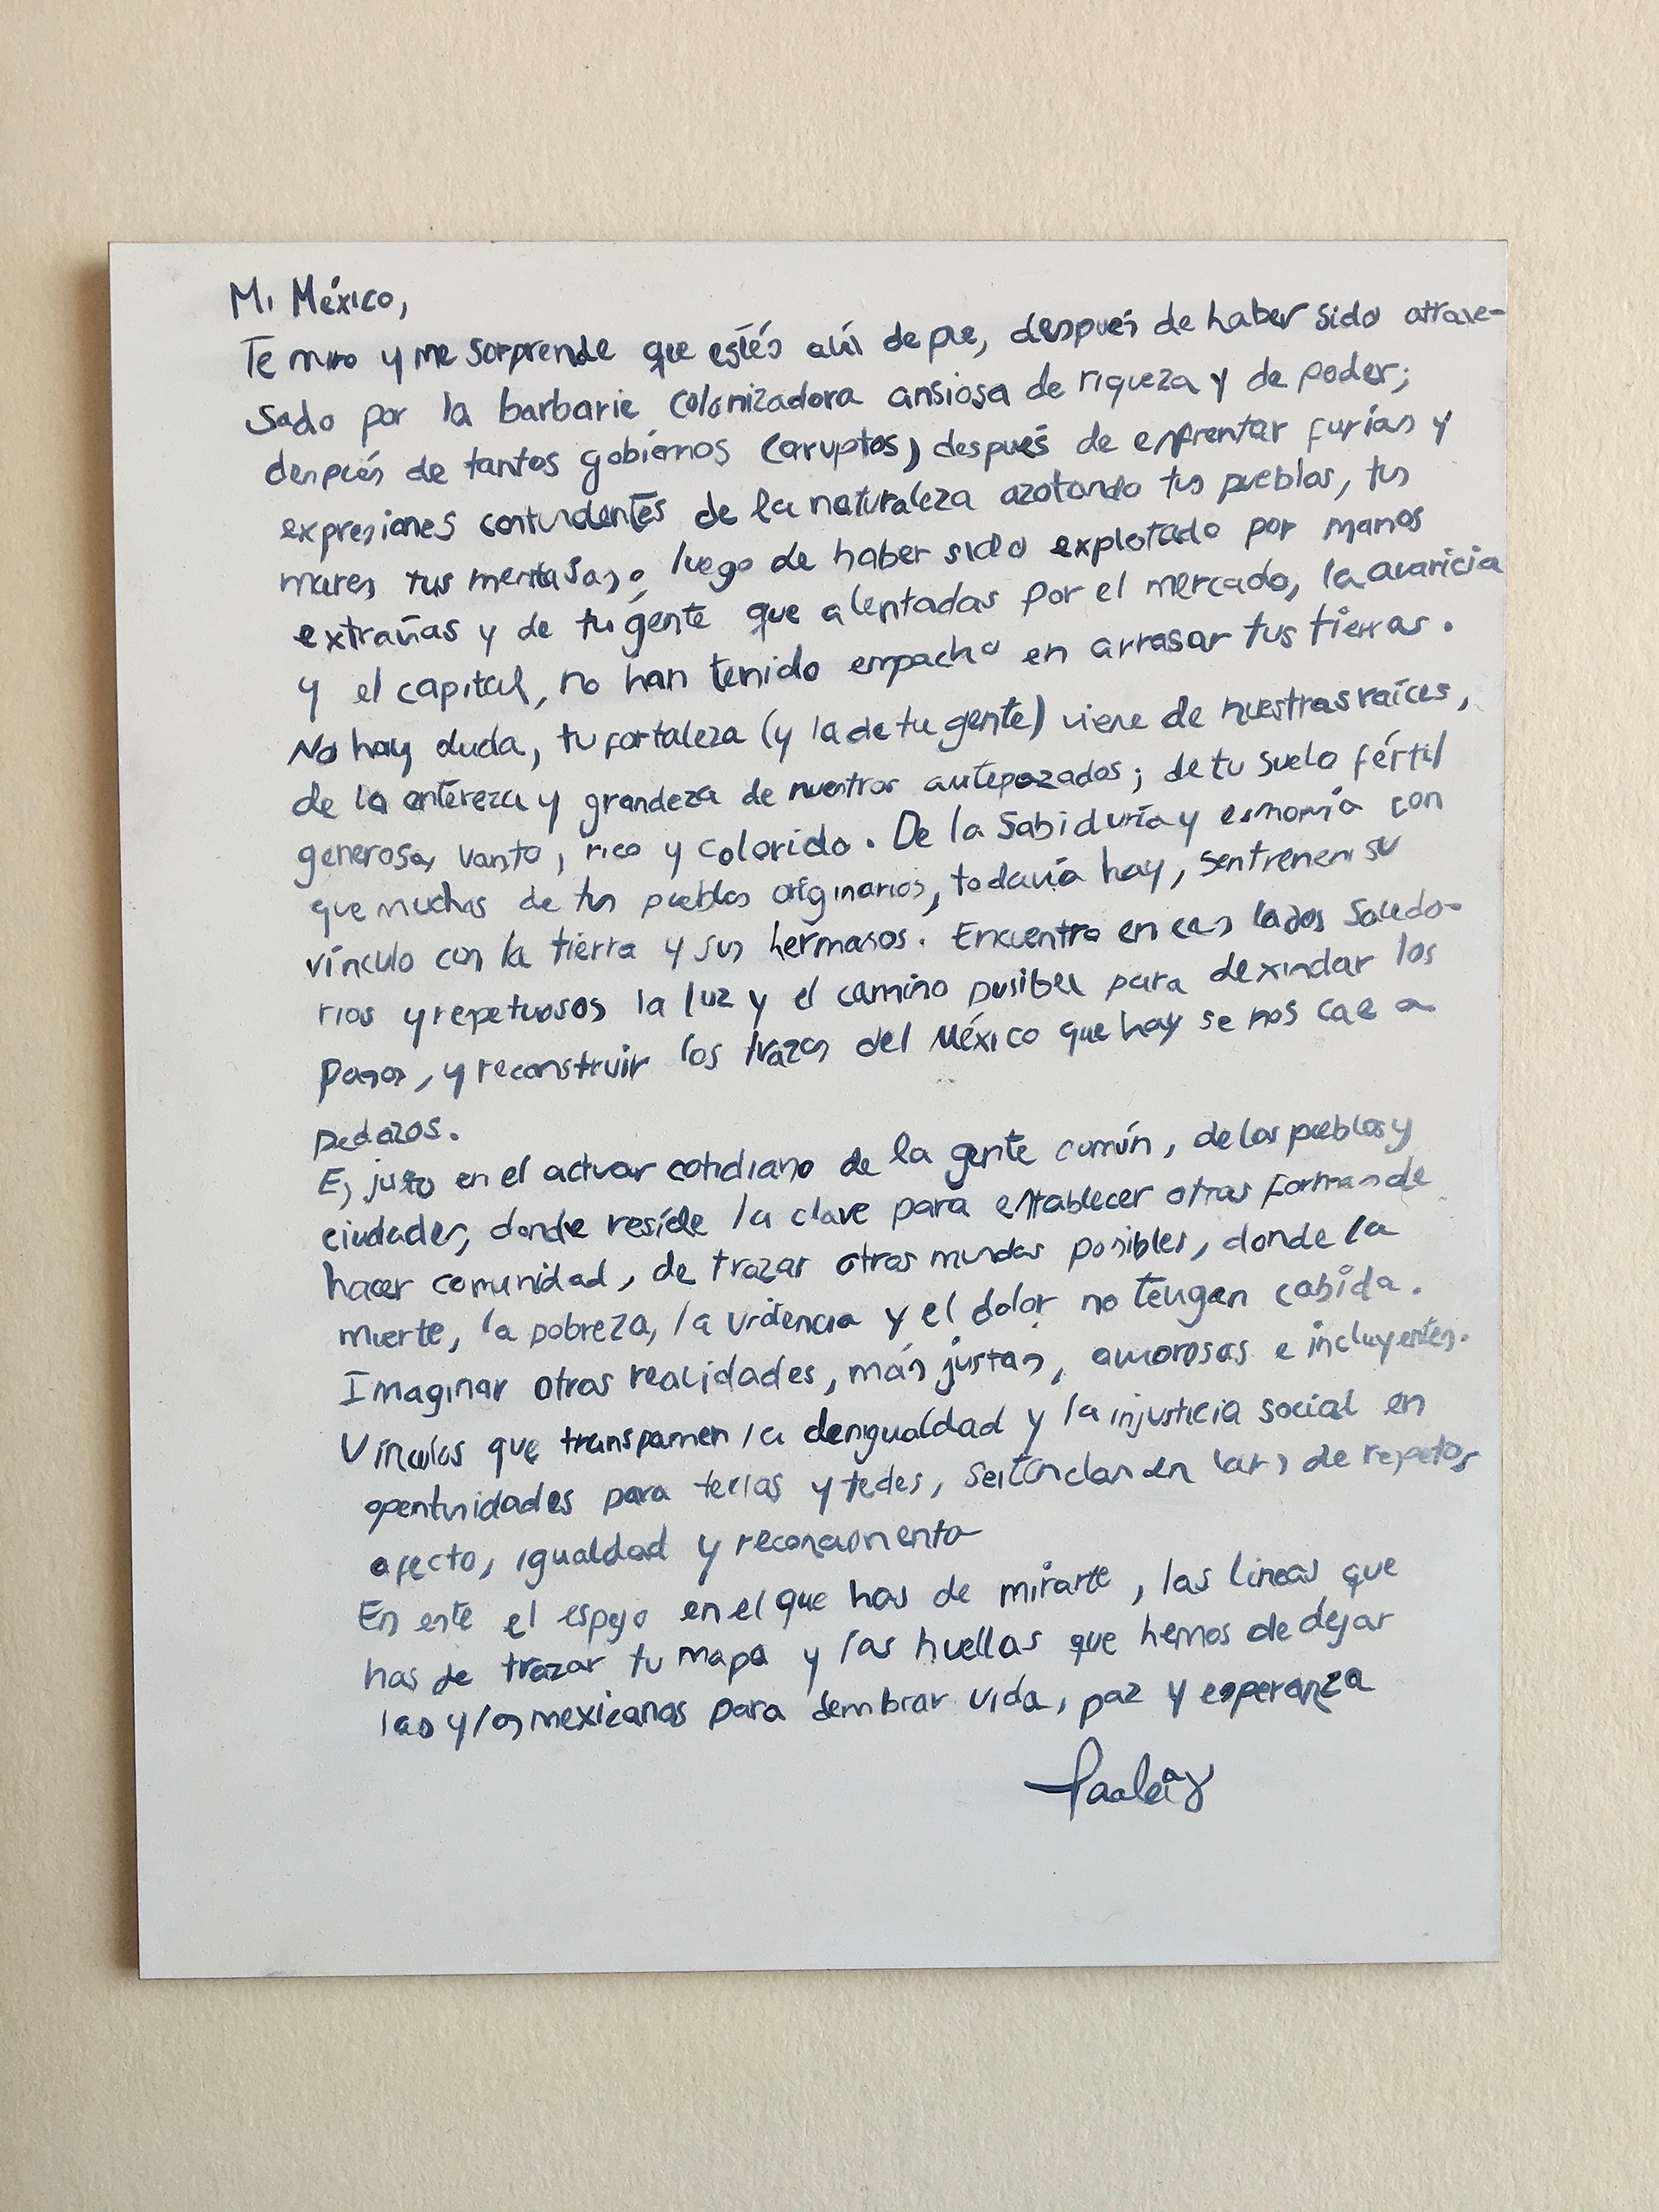 Mi México,
Te miro y me sorprende que estés ahí de pie, después de haber sido atrave-
sado por la barbarie colonizadora ansiosa de riqueza y de poder;
después de tantos gobiernos (coruptos) después de enfrentar furias y
expresiones contundentes de la naturaleza azotando tus pueblos, tus
mares tus ; luego de haber sido explotado por manos
extrañas y de tu gente que alentadas por el mercado, la avaricia
y el capital, no han tenido empacho en arrasar tus tierras.
No hay duda, tu fortaleza (y la de tu gente) viene de nuestras raíces,
de la entereza y grandeza de nuestros antepazados; de tu suelo fértil
generoso, vasto, rico y colorido. De la Sabiduría y con
que muchos de tus pueblos originarios, todavía hay, su
vínculo con la tierra y sus hermanos. Encuentro en
rios y repetuosos la luz y el camino para los
pasos, y reconstruir los trazos del México que hay se nos cae a
pedazos.
Es justo en el actuar cotidiano de la gente común, de los pueblos y
ciudades, donde reside la clave para establecer otras formas de
hacer comunidad, de trazar otros mundos posibles, donde la
muerte, la pobreza, la violencia y el dolor no tengan cabida.
Imaginar otras realidades, más justas, amorosas e incluyentes.
Vínculos que la desigualdad y la injusticia social en
para y , de respetos
afecto, igualdad y
En este el espejo en el que has de mirarte, las lineas que
has de trazar tu mapa y las huellas que hemos de dejar
las y los mexicanas para sembrar vida, paz y esperanza